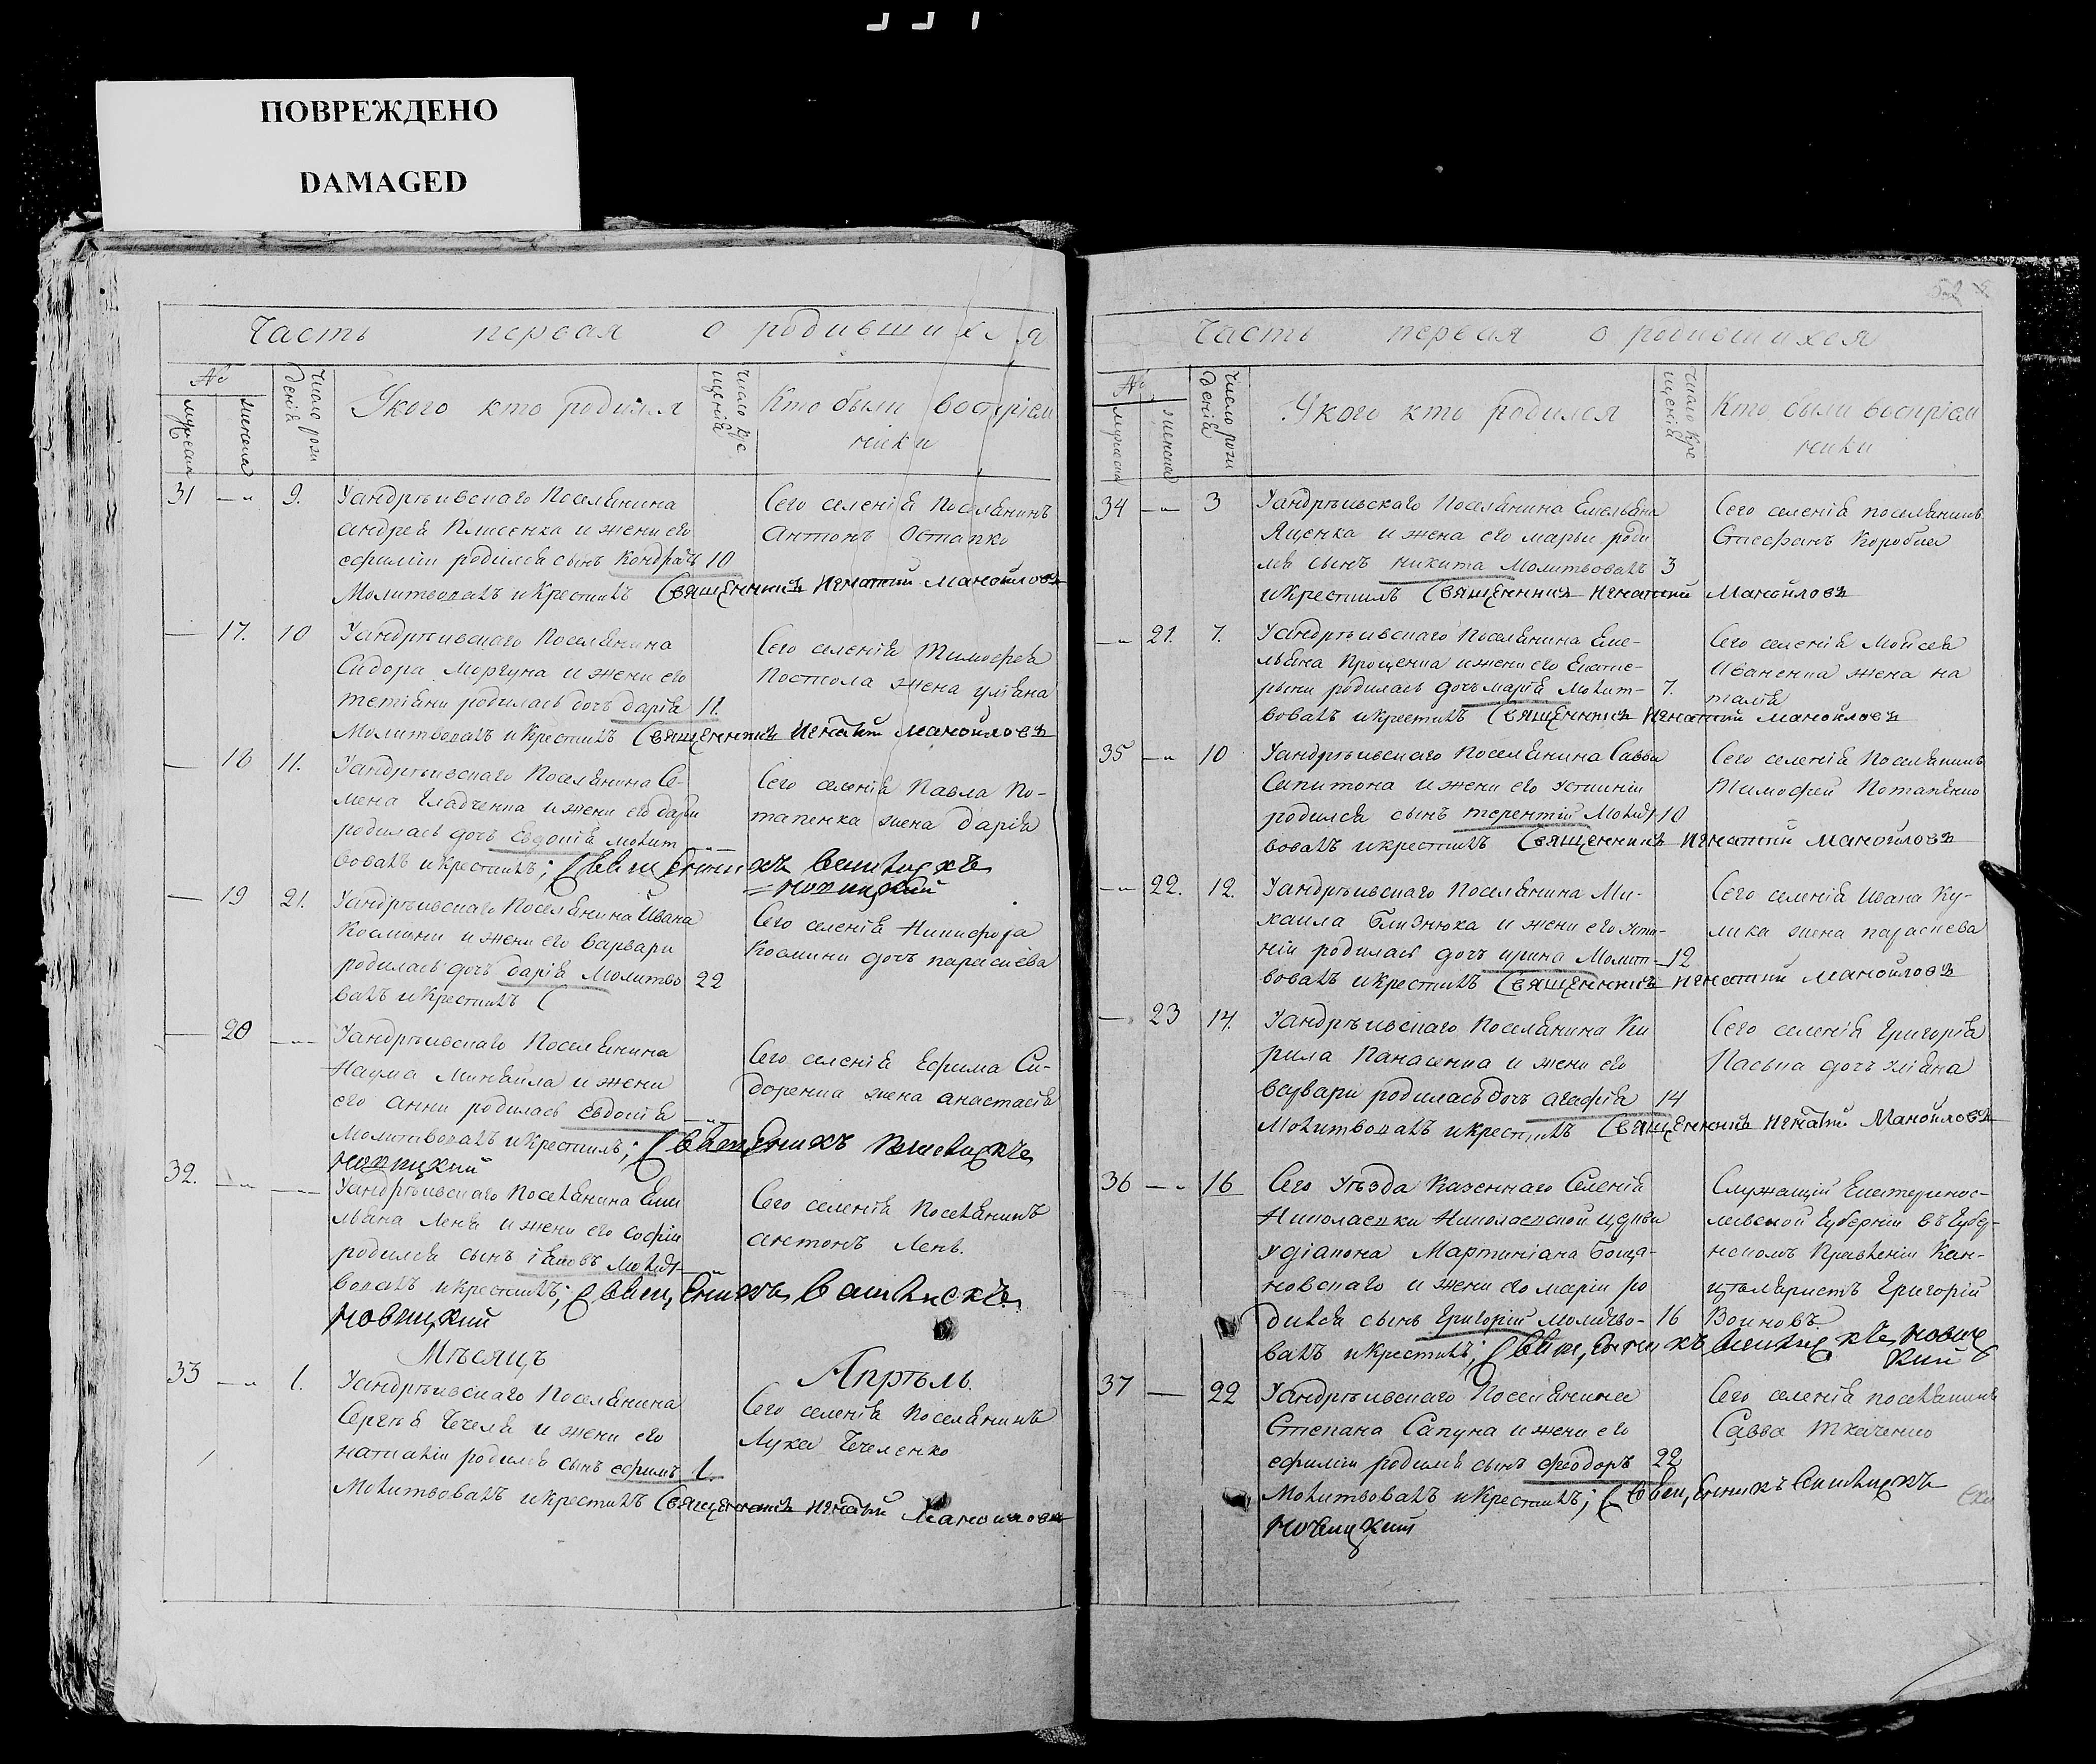 ПОВРЕЖДЕНО
DAMAGED
Часть первая о родившихся
№
мужеска
женска
Число рож
деній
У кого кто родился
число кре
щенія
Кто были восприем
ники
31 —„ 9. У андрѣивскаго Поселянина
андрея Плисенка и жени его
ефиміи родился сынъ Кондратъ 10
Молитвовалъ и Крестилъ Священникъ Игнатий Манойловъ
Сего селенія Поселянинъ
Антонъ Остапко
— 17. 10 У андрѣивскаго Поселянина
Сидора Моргуна и жени его
тетіяни родилась дочъ дарія 11.
Молитвовалъ и Крестилъ Священникъ Игнатій Манойловъ
Сего селенія Тимофея
Постола жена уліяна
— 18 11. У андрѣивскаго Поселянина Се-
мена Гладченка и жени его дари
родилась дочъ Евдокія молит —„—
вовалъ и Крестилъ; Священникъ
Новицкий
Сего селенія Павла По-
тапенка жена дарія
— 19 21. У андрѣивскаго Поселянина Ивана
Космини и жени его варвари
родилась дочъ дарія Молитво 22
валъ и Крестилъ (
Сего селенія Никифора
Космини дочъ параскева
— 20 —„— У андрѣивскаго Поселянина
Наума Михайла и жени
его анни родилась евдокія —„—
Молитвовалъ и Крестилъ; Священникъ
Новицкий
Сего селенія Ефима Си-
доренка жена анастасія
32. —„— —„— У андрѣивскаго Поселянина Еми
льяна Леня и жени его софіи
родился сынъ іаковъ Молит —„—
вовалъ и Крестилъ; Священникъ
Новицкий
Сего селенія Поселянинъ
антонъ Лень.
Мѣсяцъ Апрѣль.
33 —„ 1. У андрѣивскаго Поселянина
Сергѣя Чечеля и жени его
наталіи родился сынъ ефимъ 1.
Молитвовалъ и крестилъ Священникъ Игнатій Манойловъ
Сего селенія Поселянинъ
Лука Чечеленко
52
Часть первая о родившихся
№
мужеска
женска
Число рож
деній
У кого кто родился
число кре
щенія
Кто были восприем
ники
34 —„ 3 У андрѣивскаго Поселянина Емельяна
Яценка и жена его марьи роди
лся сынъ никита Молитвовалъ 3
и Крестилъ Священникъ Игнатий Манойловъ
Сего селенія поселянинъ
Стефанъ Коробка
—„ 21. 7. У андрѣивскаго Поселянина Еме-
льяна Проценка и жени его Екате-
рыни родилась дочъ марія Молит- 7.
вовалъ и крестилъ Священникъ Игнатий Манойловъ
Сего селенія Мойсея
Иваненка жена на
талія
35 —„ 10 У андрѣивскаго Поселянина Савви
Сапитона и жени его Устиніи
родился сынъ терентій Молит 10
вовалъ и крестилъ Священникъ Игнатий Манойловъ
Сего селенія Поселянинъ
Тимофей Потапенко
—„ 22. 12. У андрѣивскаго Поселянина Ми-
хаила Близнюка и жени его Усти-
ніи родилась дочъ ирина Молит- 12
вовалъ и крестилъ Священникъ Игнатий Манойловъ
Сего селенія Ивана Ку-
лика жена параскева
— 23 14. У андрѣивскаго Поселянина Ки
рила Панасенка и жени его
варвари родилась дочъ агафія 14
Молитвовалъ и крестилъ Священникъ Игнатій Манойловъ
Сего селенія Григорія
Паська дочъ уліяна
36 —„ 16 Сего Уѣзда Казеннаго Селенія
Николаевки Николаевской церкви
Удіакона Мартиніана Боща-
новскаго и жени его маріи ро
дился сынъ Григорій молитво- 16
валъ и крестилъ; Священникъ Новиц
кий
Служащій Екатеринос-
лавской Губерніи въ Губер-
нскомъ Правленіи Кан-
целяристъ Григорій
Воиновъ
37 — 22 У андрѣивскаго Поселянина
Степана Сапуна и жени его
ефиміи родился сынъ феодоръ 22
Молитвовалъ и Крестилъ; Священникъ
Новицкий
Сего селенія поселянинъ
Савва Ткаченко